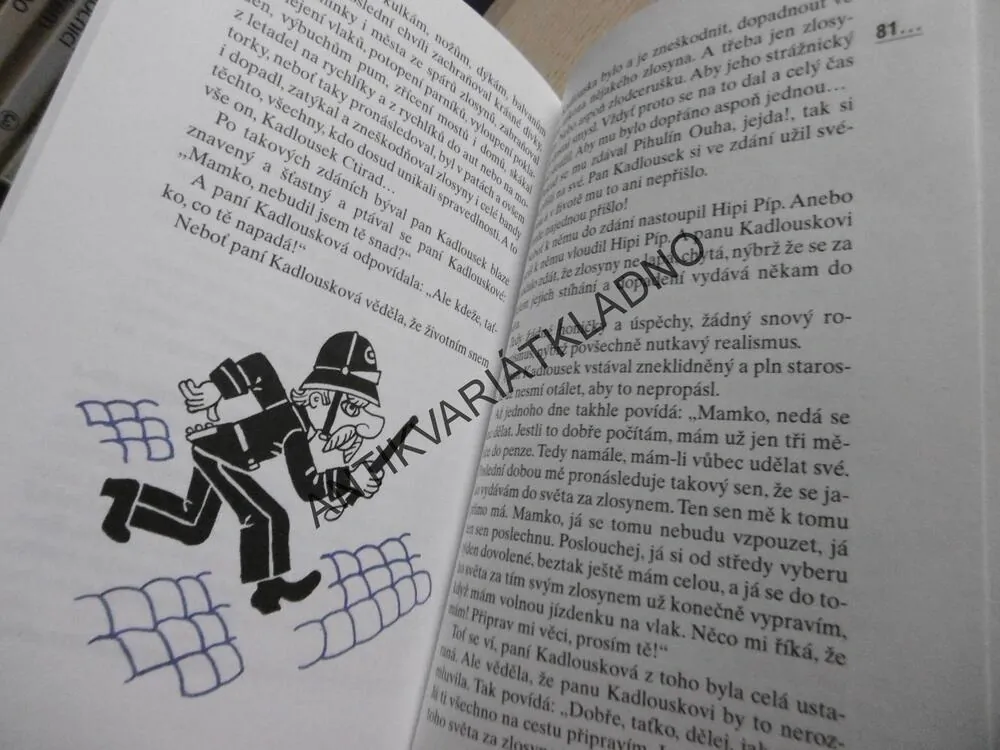 kulkám, nožům, dýkám, balvanům
poslední chvíli zachraňoval krásné dívky,
minky i města ze spárů zlosynů, zabraňoval
jení vlaků, potopení parníků, vyloupení pokla-
den, výbuchům pum, zřícení mostů i domů, skákal
z letadel na rychlíky a z rychlíků do aut nebo na mo-
torky, neboť taky pronásledoval, byl v patách a ovšem
i dopadl, zatýkal a zneškodňoval zlosyny i celé bandy
těchto, všechny, kdo dosud unikali spravedlnosti. A to
vše on, Kadlousek Ctirad...
Po takových zdáních býval pan Kadlousek blaze
znavený a šťastný a ptával se paní Kadlouskové:
„Mamko, nebudil jsem tě snad?“
A paní Kadlousková odpovídala: „Ale kdeže, tať-
ko, co tě napadá!“
Neboť paní Kadlousková věděla, že životním snem
81...
bylo a je zneškodnit, dopadnout
nějakého zlosyna. A třeba jen zlosy-
nebo aspoň zlodcerušku. Aby jeho strážnický
smysl. Vždyť proto se na to dal a celý čas
Aby mu bylo dopřáno aspoň jednou...
se mu zdával Pihulín Ouha, jejda!, tak si
na své. Pan Kadlousek si ve zdání užil své-
v životě mu to ani nepřišlo.
najednou přišlo!
k němu do zdání nastoupil Hipi Píp. Anebo
k němu vloudil Hipi Píp. A panu Kadlouskovi
zdát, že zlosyny nelapá, chytá, nýbrž že se za
jejich stíhání a dopadení vydává někam do
žádné honičky a úspěchy, žádný snový ro-
nýbrž povšechně nutkavý realismus.
Kadlousek vstával zneklidněný a pln staros-
nesmí otálet, aby to nepropásl.
Až jednoho dne takhle povídá: „Mamko, nedá se
dělat. Jestli to dobře počítám, mám už jen tři mě-
do penze. Tedy namále, mám-li vůbec udělat své.
Poslední dobou mě pronásleduje takový sen, že se ja-
vydávám do světa za zlosynem. Ten sen mě k tomu
přímo má. Mamko, já se tomu nebudu vzpouzet, já
ten sen poslechnu. Poslouchej, já si od středy vyberu
týden dovolené, beztak ještě mám celou, a já se do to-
ho světa za tím svým zlosynem už konečně vypravím,
když mám volnou jízdenku na vlak. Něco mi říká, že
mám! Připrav mi věci, prosím tě!“
Toť se ví, paní Kadlousková z toho byla celá usta-
raná. Ale věděla, že panu Kadlouskovi by to neroz-
mluvila. Tak povídá: „Dobře, taťko, dělej, jak
já ti všechno na cestu připravím.
toho světa za zlosynem
ANTIKVARIÁTKLADNO